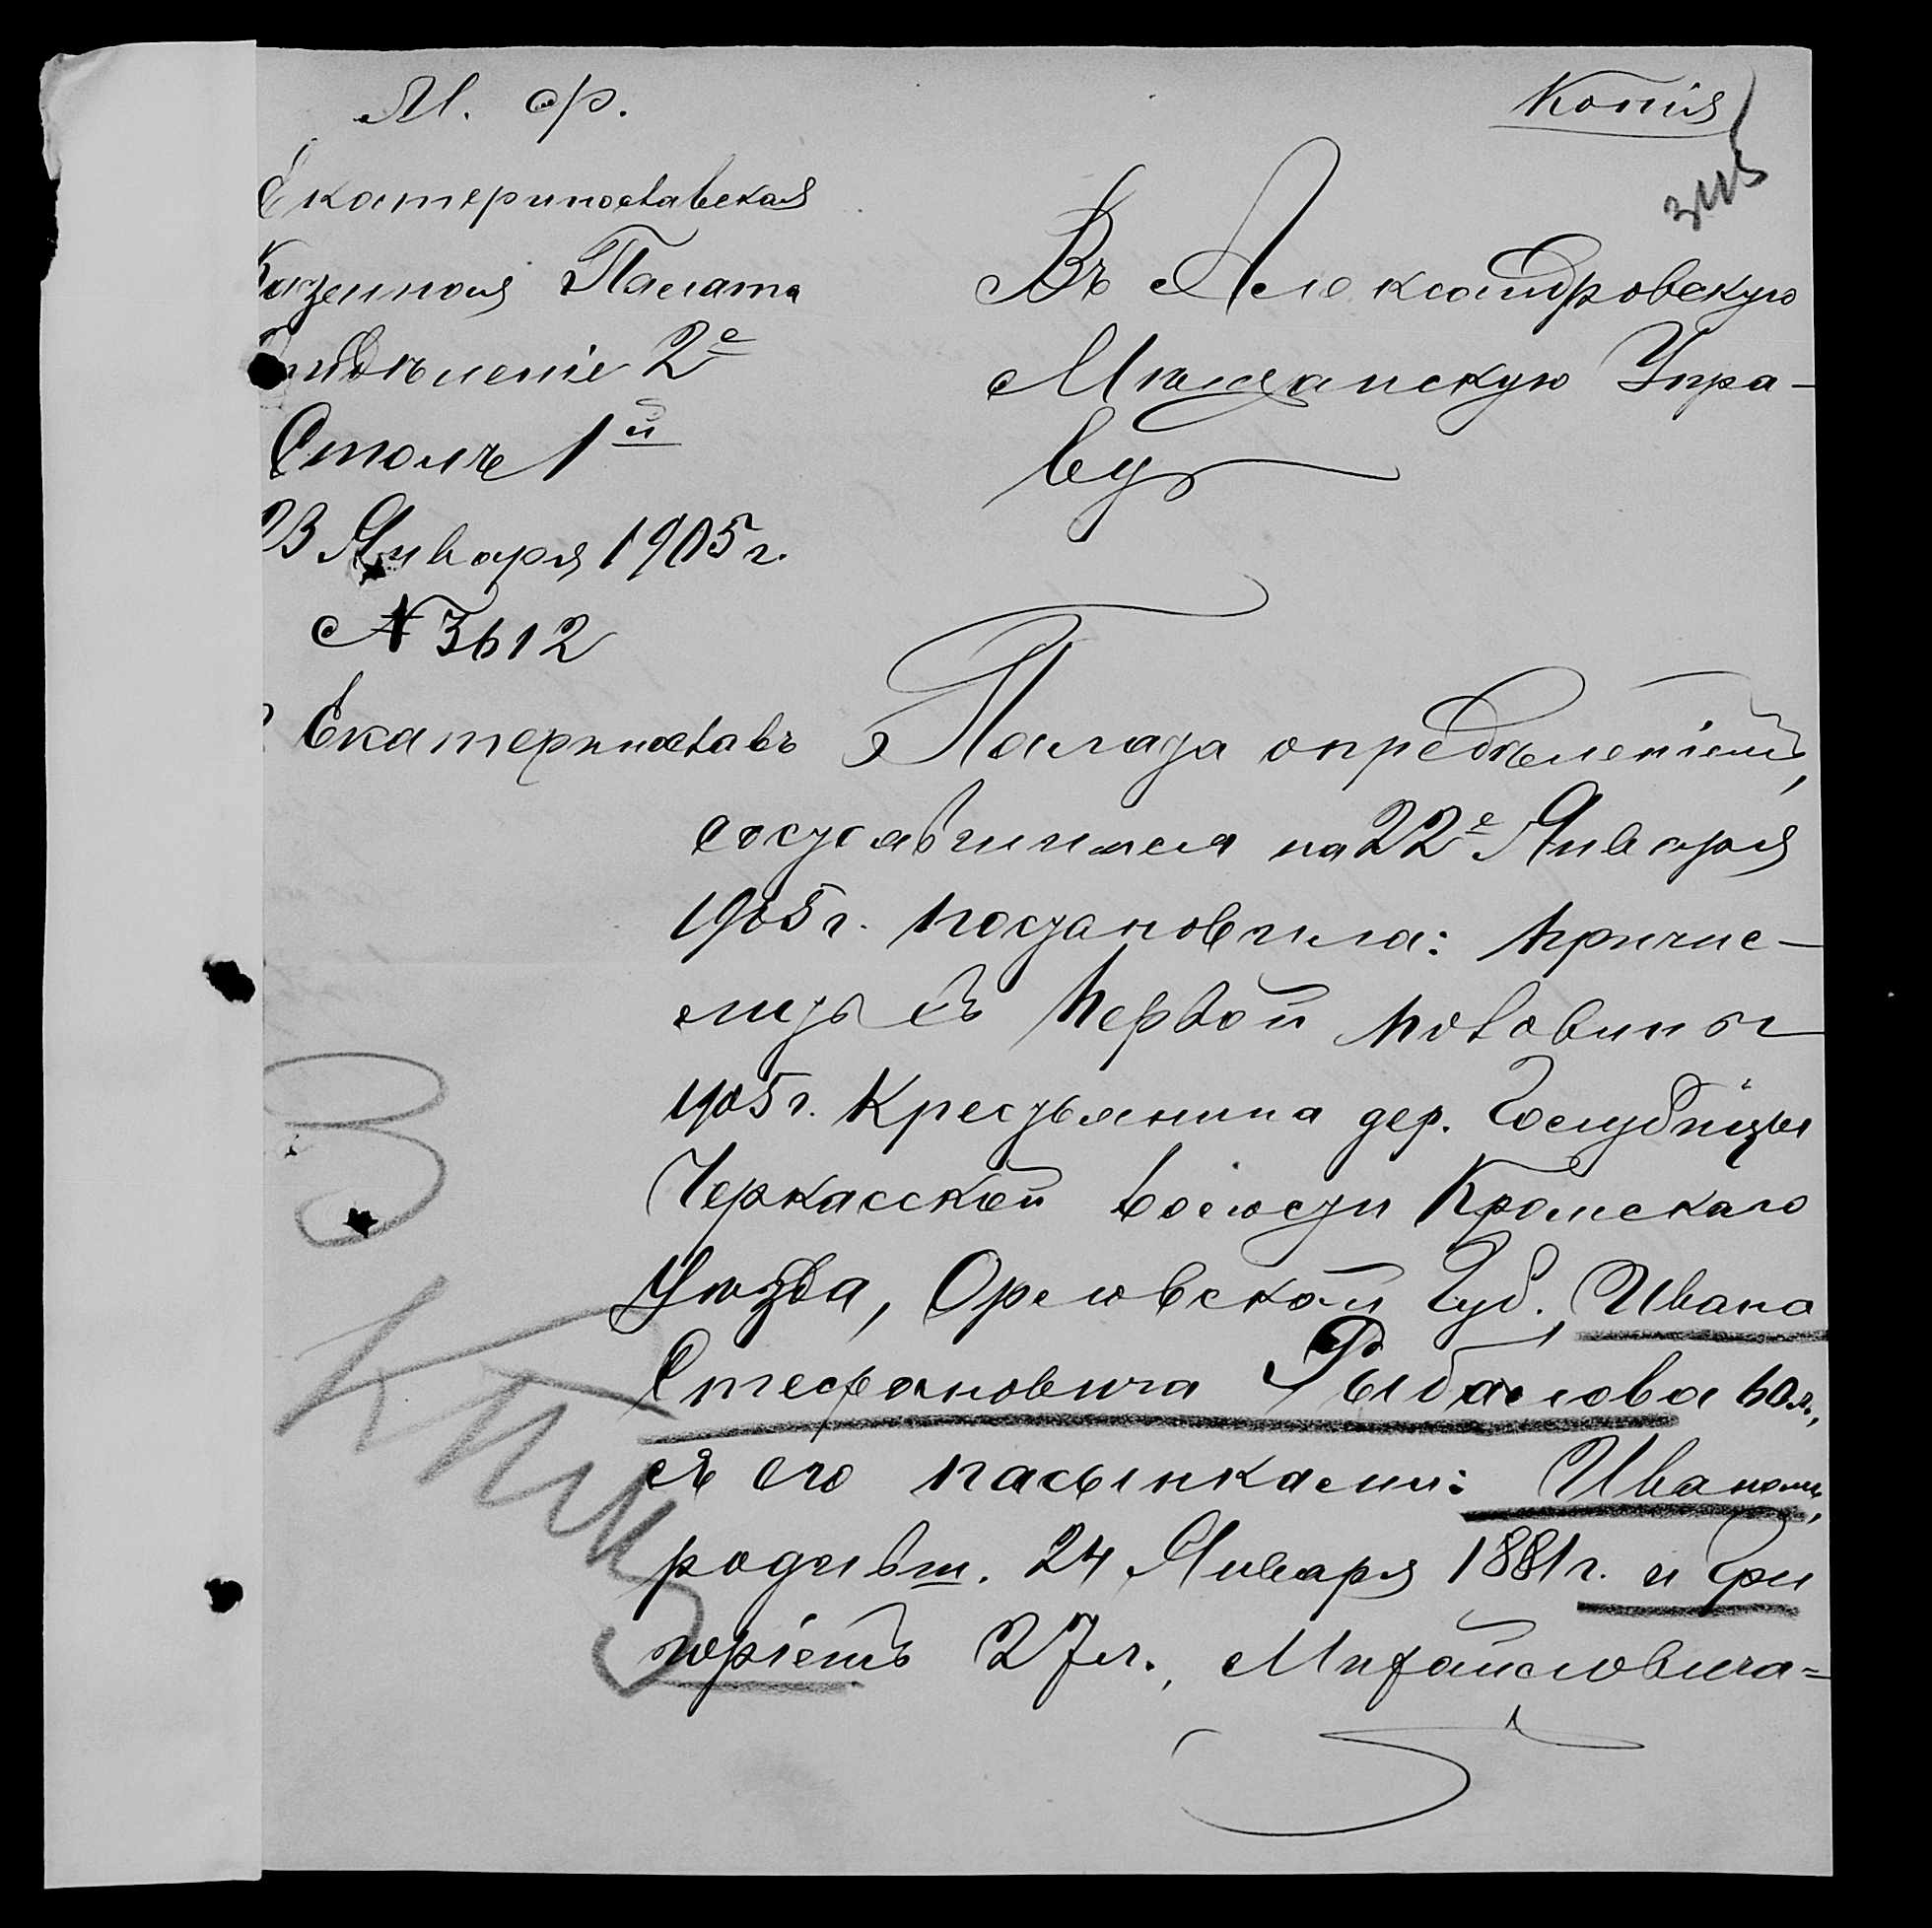 М. Ф.
Копія
Екатеринославская
Казенная Палата
Отдѣленіе 2е
Столъ 1й
23 Января 1905 г.
№ 3612
Екатеринославъ
Въ Александровскую
Мѣщанскую Упра-
ву
Палата опредѣленіемъ,
состоявшимся на 22е Января
1905 г. постановила: причис-
лить съ первой половины
1905 г. Крестьянина дер. Голубицы
Черкасской волости Кромскаго
Уѣзда, Орловской Губ., Ивана
Стефановича Рыбалова 60 л.,
съ его пасынками: Иваномъ,
родивш. 24 Января 1881 г. и Гри
горіемъ 27 л., Михайловича=